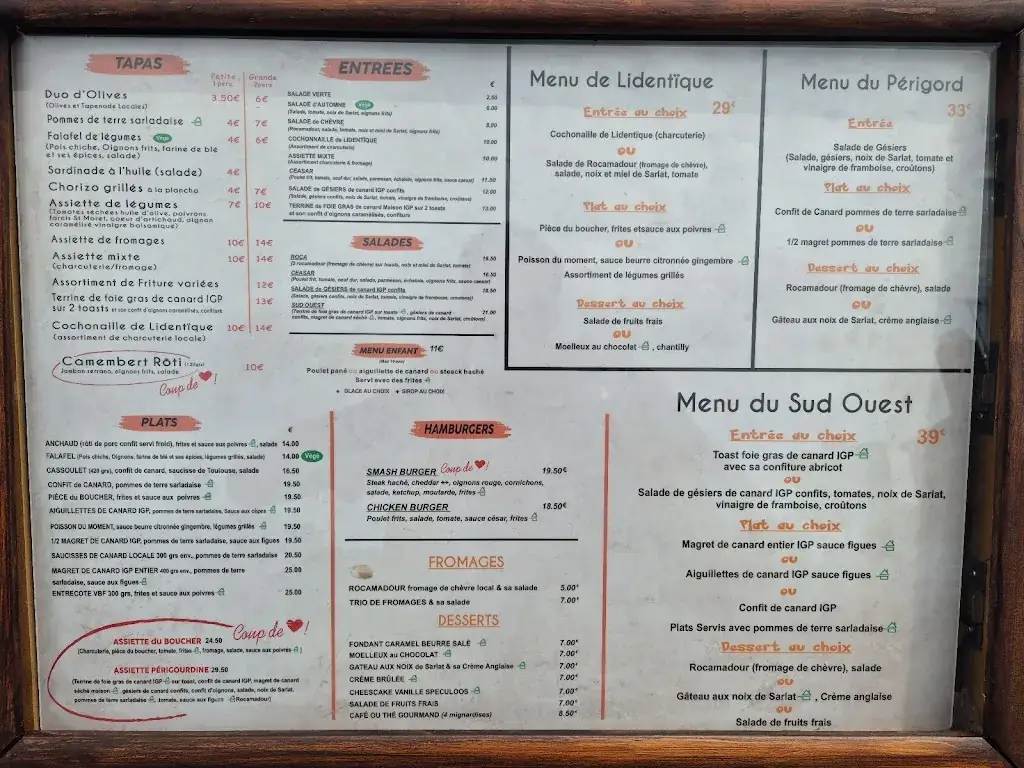 TAPAS
Petite Grande
1 pers. 2pers
Duo d'Olives 3.50€ 6€
(Olives et Tapenade Locales)
Pommes de terre sarladaise 4€ 7€
Falafel de légumes Végé 4€ 6€
(Pois chiche, Oignons frits, farine de blé
et ses épices, salade)
Sardinade à l'huile (salade) 4€
Chorizo grillés à la plancha 4€ 7€
Assiette de légumes 7€ 10€
(Tomates séchées huile d'olive, poivrons
farcis St Moret, coeur d'artichaud, oignon
caramélisé vinaigre balsamique)
Assiette de fromages 10€ 14€
Assiette mixte 10€ 14€
(charcuterie/fromage)
Assortiment de Friture variées 12€
Terrine de foie gras de canard IGP 13€
sur 2 toasts et son confit d'oignons caramélisés, confiture
Cochonaille de Lidentïque 10€ 14€
(assortiment de charcuterie locale)
Camembert Rôti
Jambon serrano, oignons frits, salade 10€
Coup de !
ENTREES
€
SALADE VERTE 2.50
SALADE d'AUTOMNE Végé 6.00
(Salade, tomate, noix de Sarlat, oignons frits)
SALADE de CHÈVRE 8.00
(Rocamadour, salade, tomate, noix et miel de Sarlat, oignons frits)
COCHONNAILLE de LIDENTÏQUE 10.00
(Assortiment de charcuterie)
ASSIETTE MIXTE 10.00
(Assortiment charcuterie & fromage)
CEASAR 11.50
(Poulet frit, tomate, oeuf dur, salade, parmesan, échalote, oignons frits, sauce caesar)
SALADE de GÉSIERS de canard IGP confits 12.00
(Salade, gésiers confits, noix de Sarlat, tomate, vinaigre de framboise, croûtons)
TERRINE de FOIE GRAS de canard Maison IGP sur 2 toasts 13.00
et son confit d'oignons caramélisés, confiture
SALADES
ROCA 16.50
(3 rocamadour (fromage de chèvre) sur toasts, noix et miel de Sarlat, tomate)
CEASAR 16.50
(Poulet frit, tomate, oeuf dur, salade, parmesan, échalote, oignons frits, sauce césar)
SALADE de GÉSIERS de canard IGP confits 18.50
(Salade, gésiers confits, noix de Sarlat, tomate, vinaigre de framboise, croûtons)
SUD OUEST 21.00
(Terrine de foie gras de canard IGP sur toasts, gésiers de canard
confits, magret de canard séché, tomate, oignons frits, noix de Sarlat, croûtons)
MENU ENFANT 11€
Poulet pané ou aiguillette de canard ou steack haché
Servi avec des frites
+ GLACE AU CHOIX + SIROP AU CHOIX
Menu de Lidentïque
Entrée au choix 29€
Cochonaille de Lidentïque (charcuterie)
ou
Salade de Rocamadour (fromage de chèvre),
salade, noix et miel de Sarlat, tomate
Plat au choix
Pièce du boucher, frites etsauce aux poivres
ou
Poisson du moment, sauce beurre citronnée gingembre
Assortiment de légumes grillés
Dessert au choix
Salade de fruits frais
ou
Moelleux au chocolat , chantilly
Menu du Périgord
33€
Entrée
Salade de Gésiers
(Salade, gésiers, noix de Sarlat, tomate et
vinaigre de framboise, croûtons)
Plat au choix
Confit de Canard pommes de terre sarladaise
ou
1/2 magret pommes de terre sarladaise
Dessert au choix
Rocamadour (fromage de chèvre), salade
ou
Gâteau aux noix de Sarlat, crème anglaise
PLATS
€
ANCHAUD (rôti de porc confit servi froid), frites et sauce aux poivres, salade 14.00
FALAFEL (Pois chiche, Oignons, farine de blé et ses épices, légumes grillés, salade) 14.00 Végé
CASSOULET (420 grs), confit de canard, saucisse de Toulouse, salade 16.50
CONFIT de CANARD, pommes de terre sarladaise 19.50
PIÈCE du BOUCHER, frites et sauce aux poivres 19.50
AIGUILLETTES DE CANARD IGP, pommes de terre sarladaise, Sauce aux cèpes 19.50
POISSON DU MOMENT, sauce beurre citronnée gingembre, légumes grillés 19.50
1/2 MAGRET DE CANARD IGP, pommes de terre sarladaise, sauce aux figues 19.50
SAUCISSES DE CANARD LOCALE 300 grs env., pommes de terre sarladaise 20.50
MAGRET DE CANARD IGP ENTIER 400 grs env., pommes de terre 25.00
sarladaise, sauce aux figues
ENTRECOTE VBF 300 grs, frites et sauce aux poivres 25.00
Coup de !
ASSIETTE DU BOUCHER 24.50
(Charcuterie, pièce du boucher, tomate, frites, fromage, salade, sauce aux poivres)
ASSIETTE PÉRIGOURDINE 29.50
(Terrine de foie gras de canard IGP sur toast, confit de canard IGP, magret de canard
séché maison, gésiers de canard confits, confit d'oignons, salade, noix de Sarlat,
pommes de terre sarladaise, tomate, sauce aux figues Rocamadour)
HAMBURGERS
SMASH BURGER Coup de ! 19.50€
Steak haché, cheddar ++, oignons rouge, cornichons,
salade, ketchup, moutarde, frites
CHICKEN BURGER 18.50€
Poulet frits, salade, tomate, sauce césar, frites
FROMAGES
ROCAMADOUR fromage de chèvre local & sa salade 5.00€
TRIO DE FROMAGES & sa salade 7.00€
DESSERTS
FONDANT CARAMEL BEURRE SALÉ 7.00€
MOELLEUX au CHOCOLAT 7.00€
GATEAU AUX NOIX de Sarlat & sa Crème Anglaise 7.00€
CRÈME BRÛLÉE 7.00€
CHEESCAKE VANILLE SPECULOOS 7.00€
SALADE DE FRUITS FRAIS 7.00€
CAFÉ OU THÉ GOURMAND (4 mignardises) 8.50€
Menu du Sud Ouest
Entrée au choix 39€
Toast foie gras de canard IGP
avec sa confiture abricot
ou
Salade de gésiers de canard IGP confits, tomates, noix de Sarlat,
vinaigre de framboise, croûtons
Plat au choix
Magret de canard entier IGP sauce figues
ou
Aiguillettes de canard IGP sauce figues
ou
Confit de canard IGP
Plats Servis avec pommes de terre sarladaise
Dessert au choix
Rocamadour (fromage de chèvre), salade
ou
Gâteau aux noix de Sarlat , Crème anglaise
ou
Salade de fruits frais